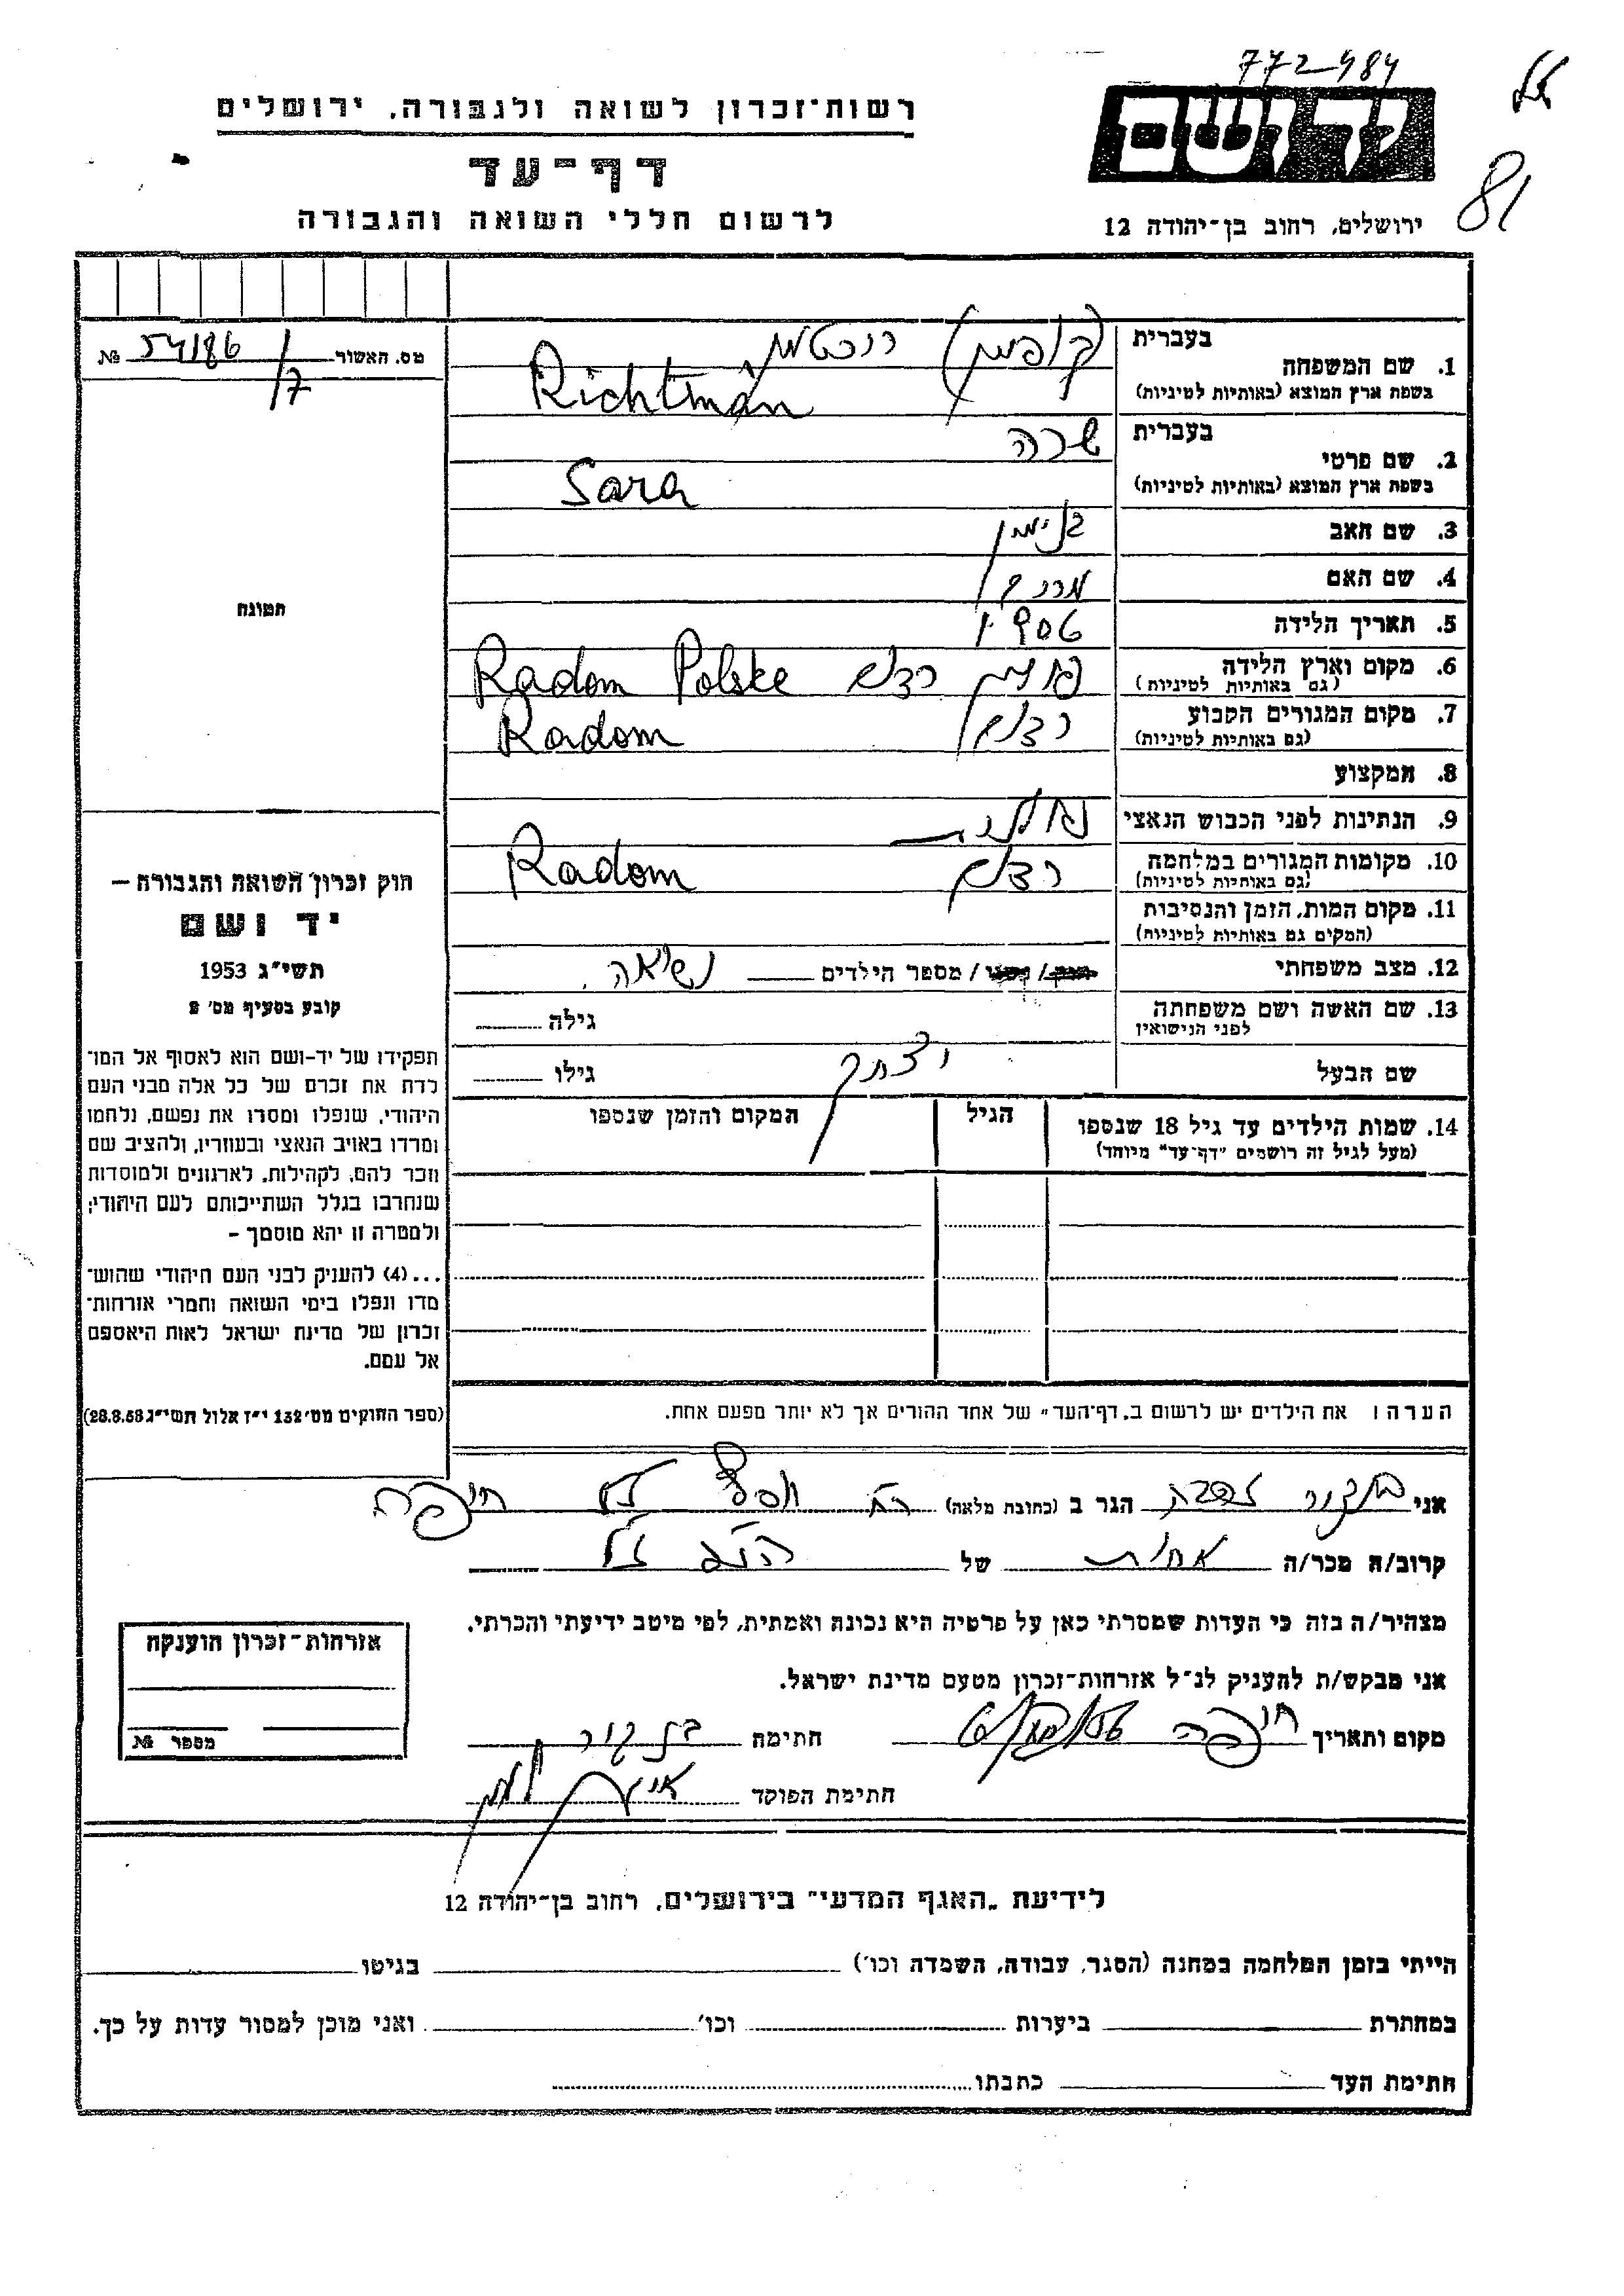 772484
81
ידושם
ירושלים, רחוב בן־יהודה 12
רשות־זכרון לשואה ולגבורה, ירושלים
דף־עד
לרשום חללי השואה והגבורה
מס. האשור 54186/7 №
תמונה
1. שם המשפחה בעברית (קופמן) ריכטמן
בשפת ארץ המוצא (באותיות לטיניות) Richtman
2. שם פרטי בעברית שרה
בשפת ארץ המוצא (באותיות לטיניות) Sara
3. שם האב בנימין
4. שם האם
5. תאריך הלידה
6. מקום וארץ הלידה (גם באותיות לטיניות) פולין רדום Radom Polske
7. מקום המגורים הקבוע (גם באותיות לטיניות) רדום Radom
8. המקצוע
9. הנתינות לפני הכבוש הנאצי פולנית
10. מקומות המגורים במלחמה (גם באותיות לטיניות) רדום Radom
11. מקום המות, הזמן והנסיבות
(המקום גם באותיות לטיניות)
12. מצב משפחתי / מספר הילדים נשואה
13. שם האשה ושם משפחתה לפני הנישואין גילה
שם הבעל יצחק גילו
14. שמות הילדים עד גיל 18 שנספו הגיל המקום והזמן שנספו
(מעל לגיל זה רושמים "דף־עד" מיוחד)
חוק זכרון השואה והגבורה —
יד ושם
תשי״ג 1953
קובע בסעיף מס׳ 2
תפקידו של יד-ושם הוא לאסוף אל המו־
לדת את זכרם של כל אלה מבני העם
היהודי, שנפלו ומסרו את נפשם, נלחמו
ומרדו באויב הנאצי ובעוזריו, ולהציב שם
וזכר להם, לקהילות, לארגונים ולמוסדות
שנחרבו בגלל השתייכותם לעם היהודי;
ולמטרה זו יהא מוסמך -
...(4) להעניק לבני העם היהודי שהוש־
מדו ונפלו בימי השואה והמרי אזרחות־
זכרון של מדינת ישראל לאות היאספם
אל עמם.
(ספר החוקים מס׳ 132 י״ז אלול תשי״ג 28.8.53)
הערה: את הילדים יש לרשום ב„דף־העד״ של אחד ההורים אך לא יותר מפעם אחת.
אני הגר ב (כתובת מלאה) חיפה
קרוב/ה מכר/ה אחות של
מצהיר/ה בזה כי העדות שמסרתי כאן על פרטיה היא נכונה ואמתית, לפי מיטב ידיעתי והכרתי.
אני מבקש/ת להעניק לנ״ל אזרחות־זכרון מטעם מדינת ישראל.
מקום ותאריך חיפה חתימה
חתימת הפוקד
אזרחות־זכרון הוענקה
מספר №
לידיעת „האגף המדעי״ בירושלים, רחוב בן־יהודה 12
הייתי בזמן המלחמה במחנה (הסגר, עבודה, השמדה וכו׳) בגיטו
במחתרת ביערות וכו׳ ואני מוכן למסור עדות על כך.
חתימת העד כתבתו